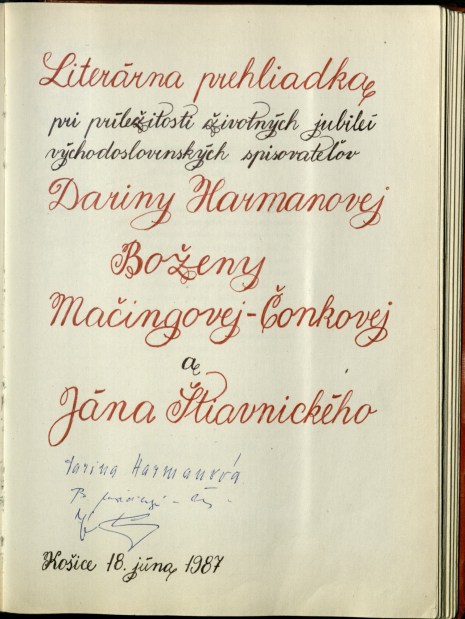 Literárna prehliadka
pri príležitosti životných jubileí
východoslovenských spisovateľov
Dariny Harmanovej
Boženy
Mačingovej-Čonkovej
a
Jána Štiavnického
Darina Harmanová
B
Košice 18. júna 1987